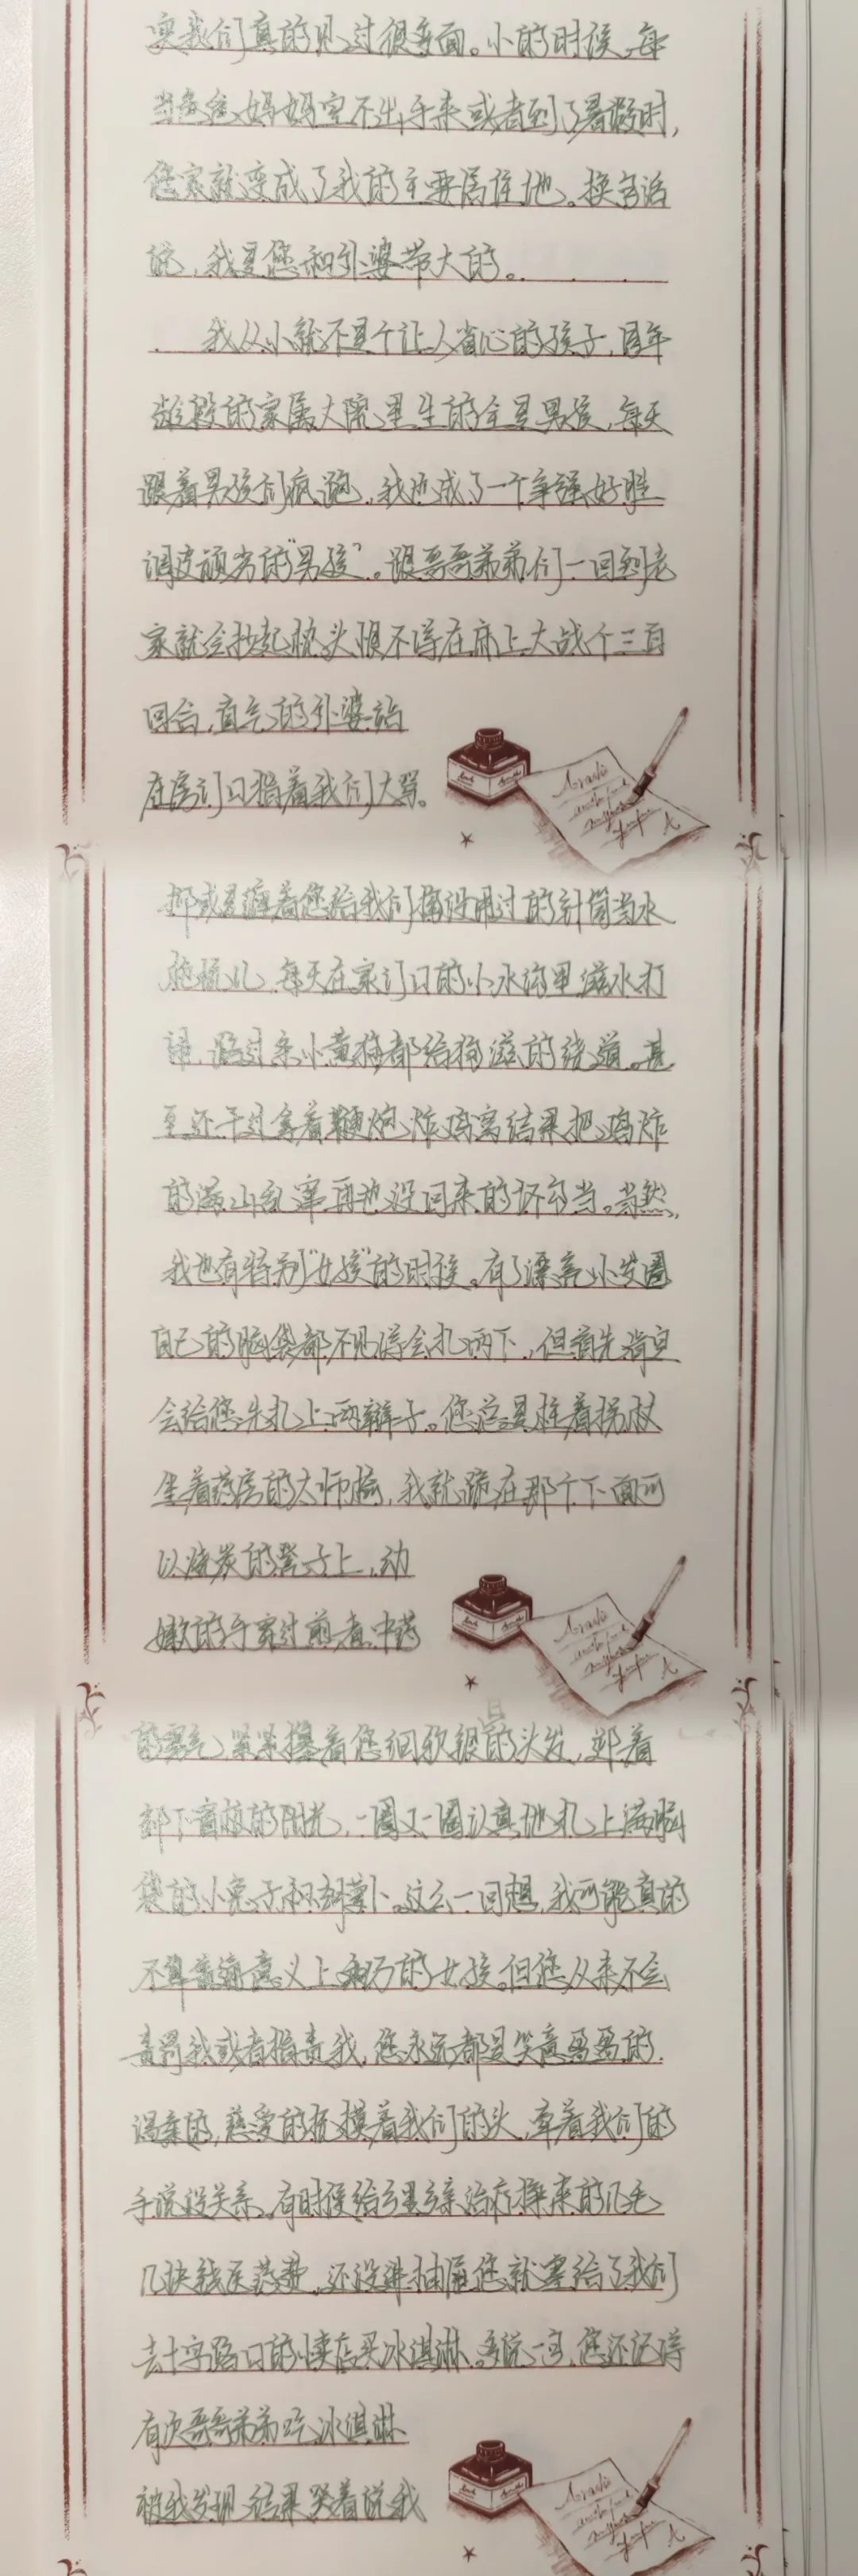 实我们真的见过很多面。小的时候,每
当爸爸妈妈空不出手来或者到了暑假时,
您家就变成了我的主要居住地。换句话
说,我是您和外婆带大的。
我从小就不是个让人省心的孩子,同年
龄段的家属大院里生的全是男孩,每天
跟着男孩们疯跑,我也成了一个争强好胜
调皮顽劣的“男孩”。跟哥哥弟弟们一回到老
家就会抄起枕头恨不得在床上大战个三百
回合,直气的外婆站
在房门口指着我们大骂。
抑或是缠着您给我们搞没用过的针筒当水
枪玩儿,每天在家门口的小水沟里滋水打
诨,路过条小黄狗都给狗滋的绕道。甚
至还干过拿着鞭炮炸鸡窝结果把鸡炸
的满山乱窜再也没回来的坏勾当。当然,
我也有特别“女孩”的时候。有了漂亮小发圈
自己的脑袋都不见得会扎两下,但首先指定
会给您先扎上两辫子。您总是拄着拐杖
坐着药房的太师椅,我就跪在那个下面可
以烧炭的凳子上,幼
嫩的手穿过煎煮中药
的雾气,紧紧攥着您细软银白的头发,迎着
卸下窗板的阳光,一圈又一圈认真地扎上满脑
袋的小兔子和胡萝卜。这么一回想,我可能真的
不算普遍意义上乖巧的女孩。但您从来不会
责骂我或者指责我,您永远都是笑意盈盈的,
温柔的,慈爱的抚摸着我们的头,牵着我们的
手说没关系。有时候给乡里乡亲治疗挣来的几毛
几块钱医药费,还没进抽屉您就塞给了我们
去十字路口的小卖店买冰淇淋。多说一句,您还记得
有次哥哥弟弟吃冰淇淋
被我发现,结果哭着说我